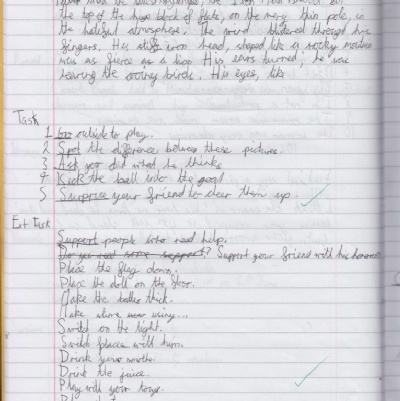 the top of the huge block of flats, on the very thin pole, in
the hateful atmosphere. The wind blustered through his
fingers. His stiff iron head, shaped like a rocky
was as fierce as a lion. His ears turned; he was
hearing the wooing birds. His eyes, like
Task
1 Go outside to play.
2 Spot the difference between these pictures.
3 Ask your dad what he thinks
4 Kick the ball into the goal
5 Surprise your friend to cheer them up.
Ext Task
Support people who need help.
Do you need some support? Support your friend with his
Place the flag down.
Place the doll on the floor.
Make the batter thick.
Make
Switch on the light.
Switch places with him.
Drink your
Drink the juice.
Play with your toys.